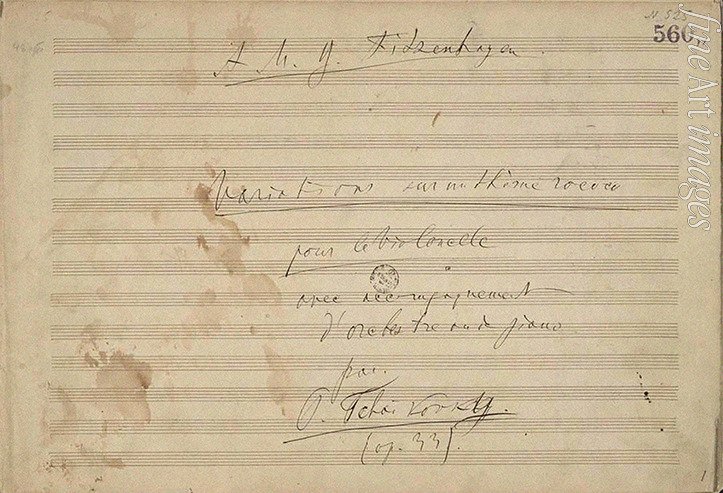 N. 525
560.
A M. G. Fitzenhagen.
Variations sur un thème rococo
pour le Violoncelle
avec accompagnement
d'orchestre ou de piano
par.
P. Tchaikovsky.
(op. 33).
1
fine Art images